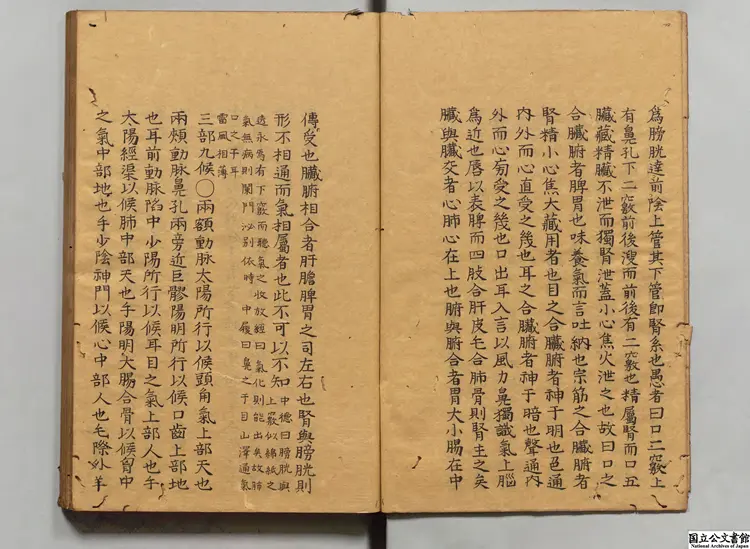 爲膀胱達前陰上管其下管即腎系也愚者曰口二竅上
有鼻孔下二竅前後溲而前後有二竅也精屬腎而口五
臟藏精臟不泄而獨腎泄蓋小心焦火泄之也故曰口之
合臟腑者脾胃也味養氣而言吐納也宗筋之合臟腑者
腎精小心焦大藏用者也目之合臟腑者神于明也邑通
内外而心直受之幾也耳之合臟腑者神于暗也聲通内
外而心受之幾也口出耳入言以風力鼻獨識氣上腦
爲近也唇以表脾而四肢合肝皮毛合肺骨則腎主之矣
臟與臟交者心肺心在上也腑與腑合者胃大小腸在中
傳受也臟腑相合者肝膽脾胃之司左右也腎與膀胱則
形不相通而氣相屬者也此不可以不知
中德曰膀胱與
上竅似綿紙之
透水爲有下竅而聽氣之收放經曰氣化則能出矣故肺
氣無病則闌門泌別依時 中履曰鼻之于目山澤通氣
口之于耳
雷風相薄
三部九候〇兩額動脉太陽所行以候頭角氣上部天也
兩頰動脉鼻孔兩旁近巨髎陽明所行以候口齒上部地
也耳前動脉陷中少陽所行以候耳目之氣上部人也手
大陽經渠以候肺中部天也手陽明大腸合骨以候胷中
之氣中部地也手少陰神門以候心中部人也毛際外羊
国立公文書館
National Archives of Japan